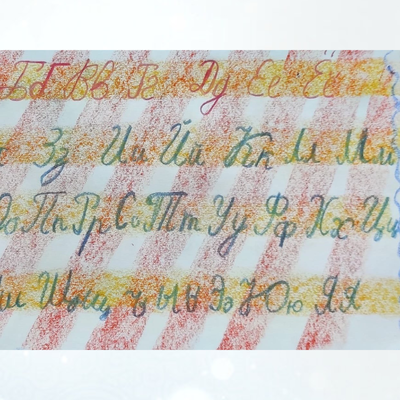 Бб Вв Гг Дд Ее Ёё
Зз Ии Йй Кк Лл Мм
Оо Пп Рр Сс Тт Уу Фф Хх Цц
Шш Щщ ъ ы ь Ээ Юю Яя